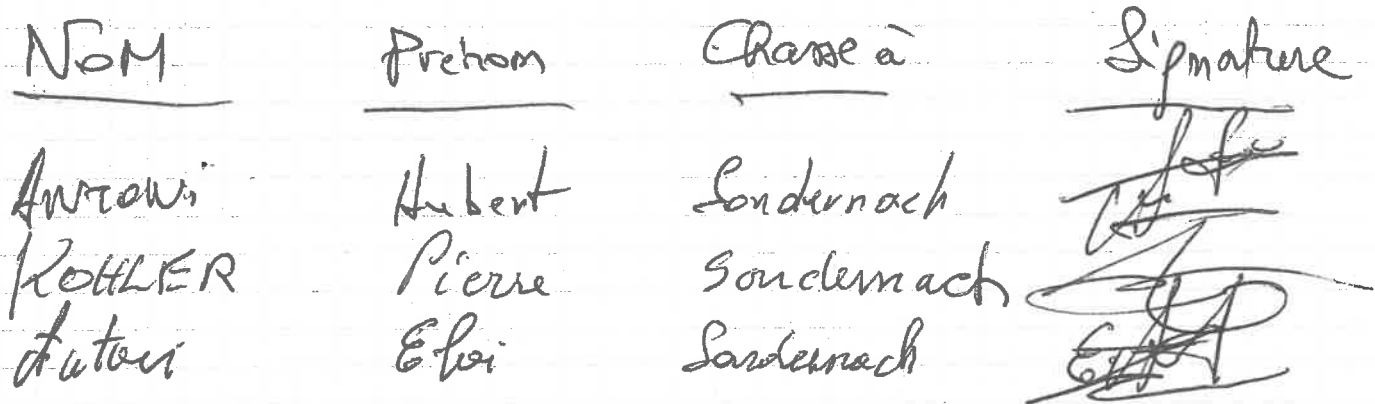 NOM Prénom Chasse à Signature
ANTONI Hubert Sondernach
KOHLER Pierre Sondernach
Antoni Eloi Sondernach